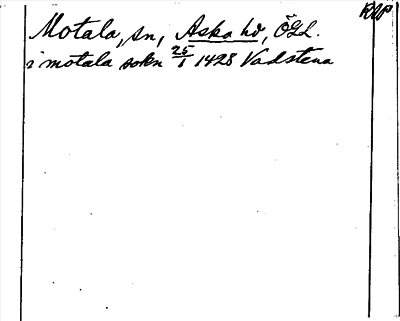 RAP
Motala, sn, Aska hd, ÖGL.
i motala sokn 25/1 1428 Vadstena